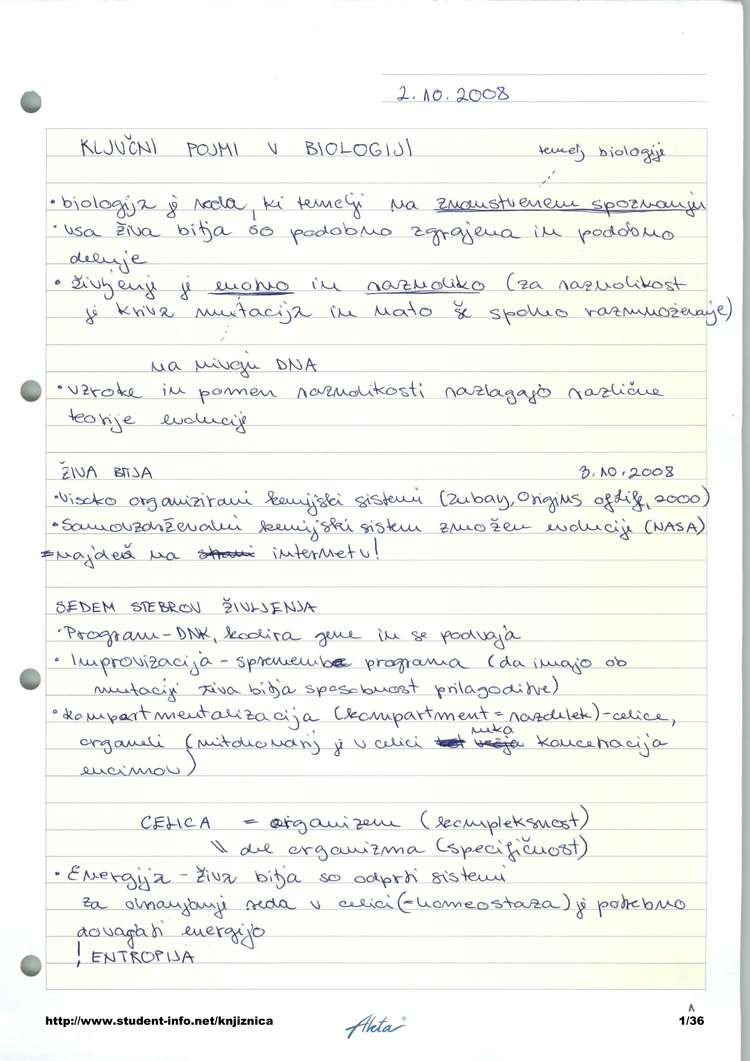 2.10.2008
KLJUČNI POJMI V BIOLOGIJI
temelj biologije
• biologija je veda, ki temelji na znanstvenem spoznanju
• vsa živa bitja so podobno zgrajena in podobno
deluje
• življenje je enotno in raznoliko (za raznolikost
je kriva mutacija in nato še spolno razmnoževanje)
na nivoju DNA
• vzroke in pomen raznolikosti razlagajo različne
teorije evolucije
ŽIVA BITJA 3.10.2008
• Visoko organizirani kemijski sistemi (Zubay, Origins of Life, 2000)
• Samovzdrževalni kemijski sistem zmožen evolucije (NASA)
= najdeš na strani internetu!
SEDEM STEBROV ŽIVLJENJA
• Program - DNK, kodira gene in se podvaja
• Improvizacija - sprememba programa (da imajo ob
mutaciji živa bitja sposobnost prilagoditve)
• kompartmentalizacija (kompartment = razdelek) - celice,
neka
organeli (mitohondrij je v celici večja koncetracija
encimov)
CELICA = organizem (kompleksnost)
\\ del organizma (specifičnost)
• Energija - živa bitja so odprti sistemi
za ohranjanje reda v celici (=homeostaza) je potrebno
dovajati energijo
! ENTROPIJA
http://www.student-info.net/knjiznica
Akta
1
1/36